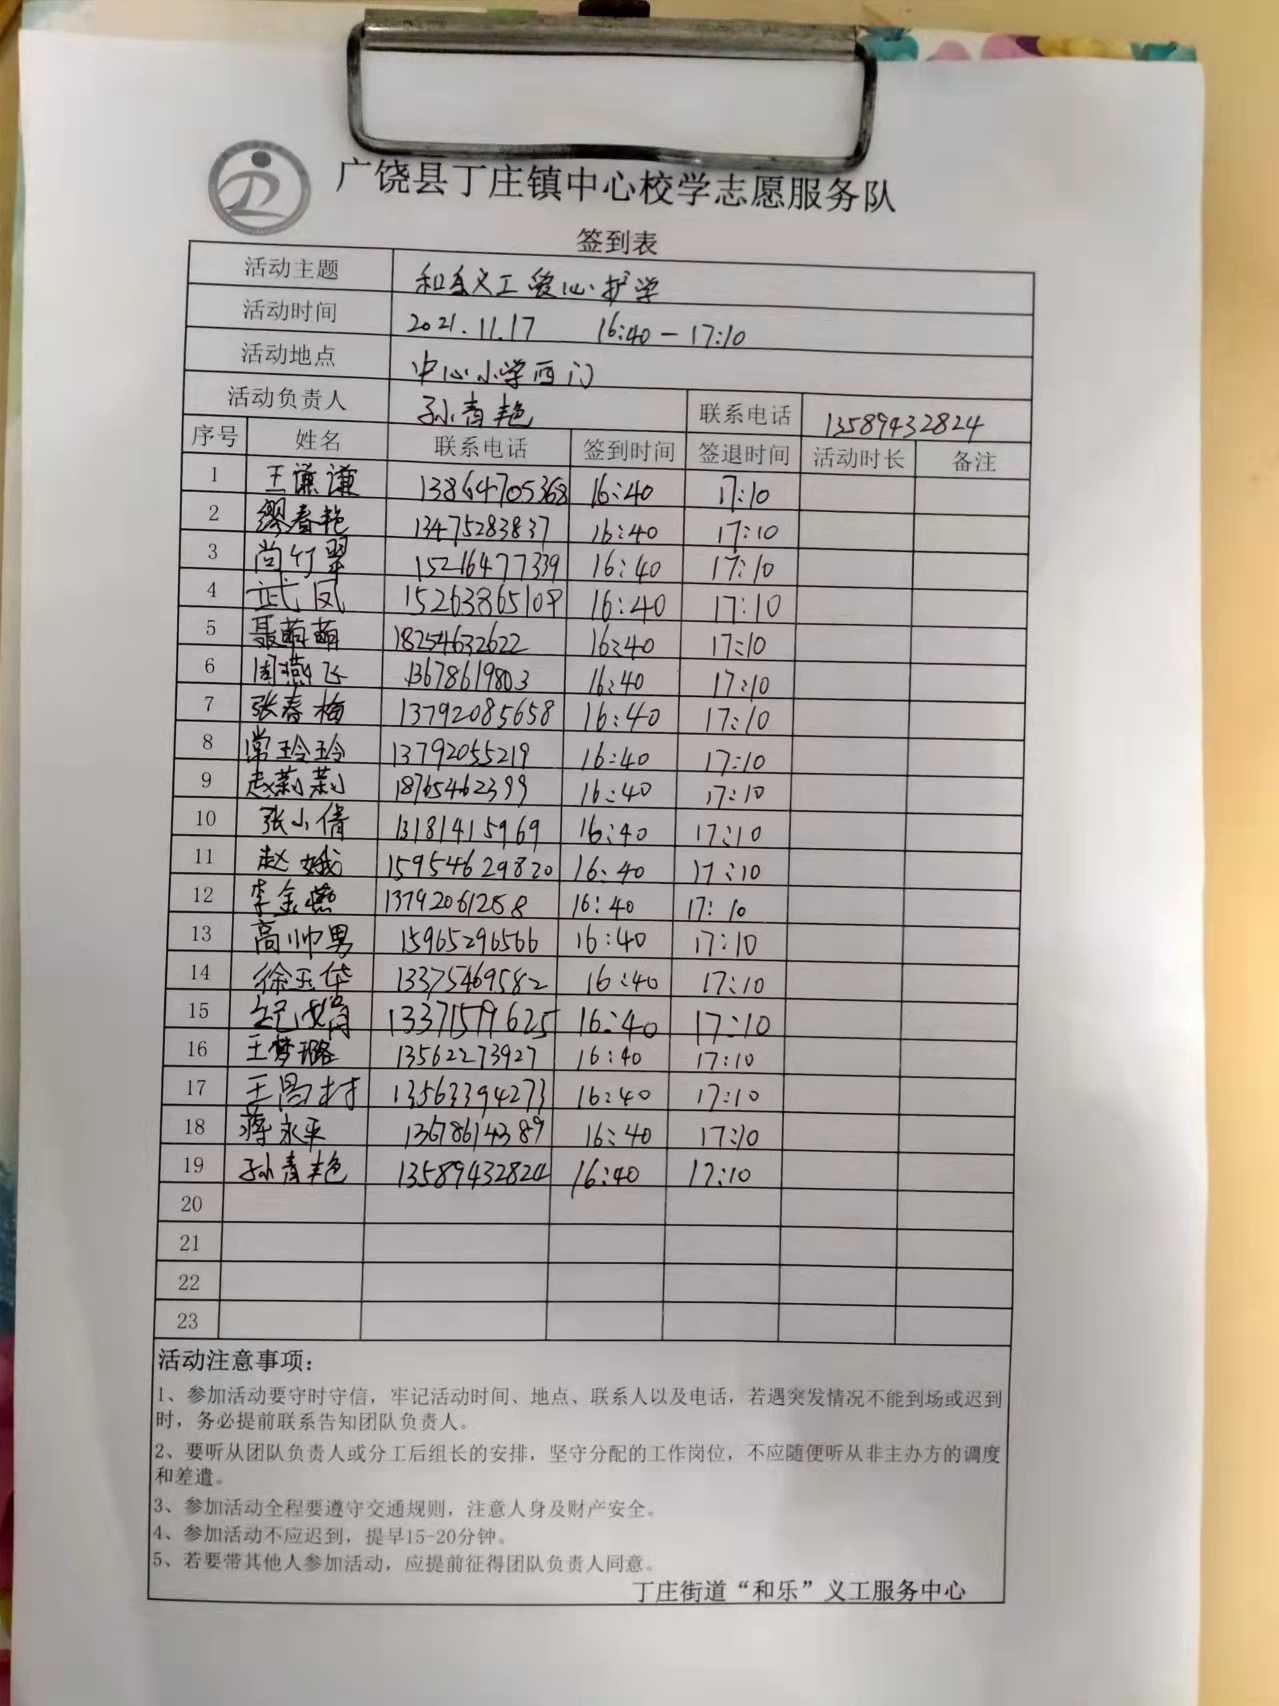 广饶县丁庄镇中心校学志愿服务队
签到表
活动主题 和乐义工爱心护学
活动时间 2021.11.17 16:40-17:10
活动地点 中心小学西门
活动负责人 孙青艳 联系电话 13589432824
序号 姓名 联系电话 签到时间 签退时间 活动时长 备注
1 王谦谦 13864705368 16:40 17:10
2 缪春艳 13475283837 16:40 17:10
3 尚竹翠 15216477339 16:40 17:10
4 武凤 15263865109 16:40 17:10
5 聂萌萌 18254632622 16:40 17:10
6 周燕飞 13678619803 16:40 17:10
7 张春梅 13792085658 16:40 17:10
8 常玲玲 13792055219 16:40 17:10
9 赵莉莉 18765462399 16:40 17:10
10 张小倩 13181415969 16:40 17:10
11 赵娥 15954629820 16:40 17:10
12 李金燕 13792061258 16:40 17:10
13 高帅男 15965296566 16:40 17:10
14 徐玉华 13375469582 16:40 17:10
15 13371579625 16:40 17:10
16 王梦璐 13562273927 16:40 17:10
17 王昌村 13563394273 16:40 17:10
18 蒋永平 13678614389 16:40 17:10
19 孙青艳 13589432824 16:40 17:10
20
21
22
23
活动注意事项：
1、参加活动要守时守信，牢记活动时间、地点、联系人以及电话，若遇突发情况不能到场或迟到
时，务必提前联系告知团队负责人。
2、要听从团队负责人或分工后组长的安排，坚守分配的工作岗位，不应随便听从非主办方的调度
和差遣。
3、参加活动全程要遵守交通规则，注意人身及财产安全。
4、参加活动不应迟到，提早15-20分钟。
5、若要带其他人参加活动，应提前征得团队负责人同意。
丁庄街道“和乐”义工服务中心